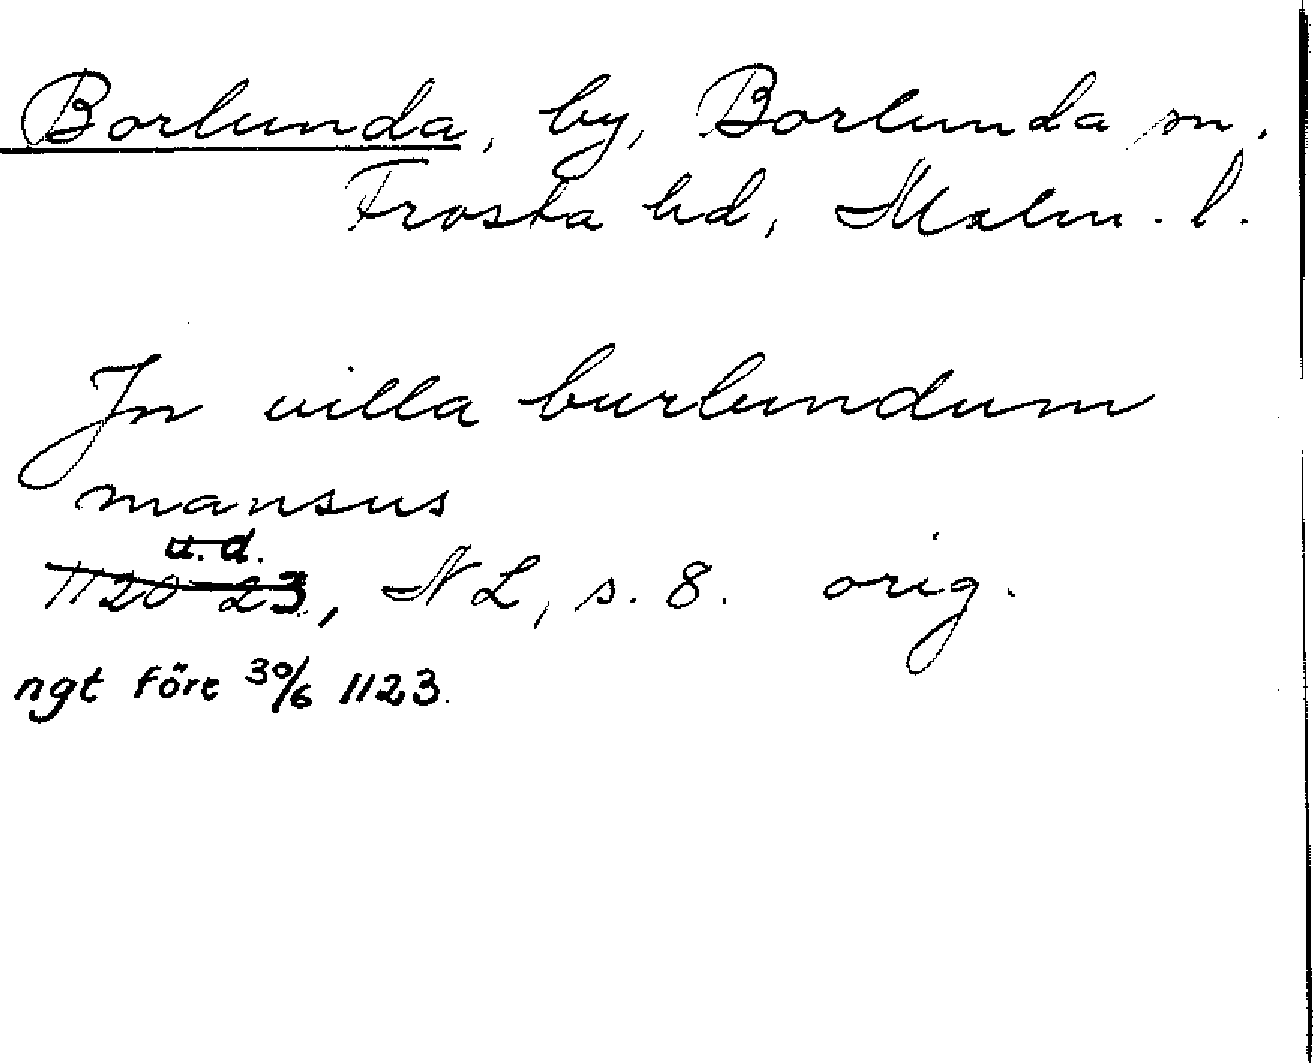 Borlunda, by, Borlunda sn,
Frosta hd, Malm. l.
Jn villa burlundum
mansus
u. d.
1120-23, NL, s. 8. orig.
ngt före 30/6 1123.